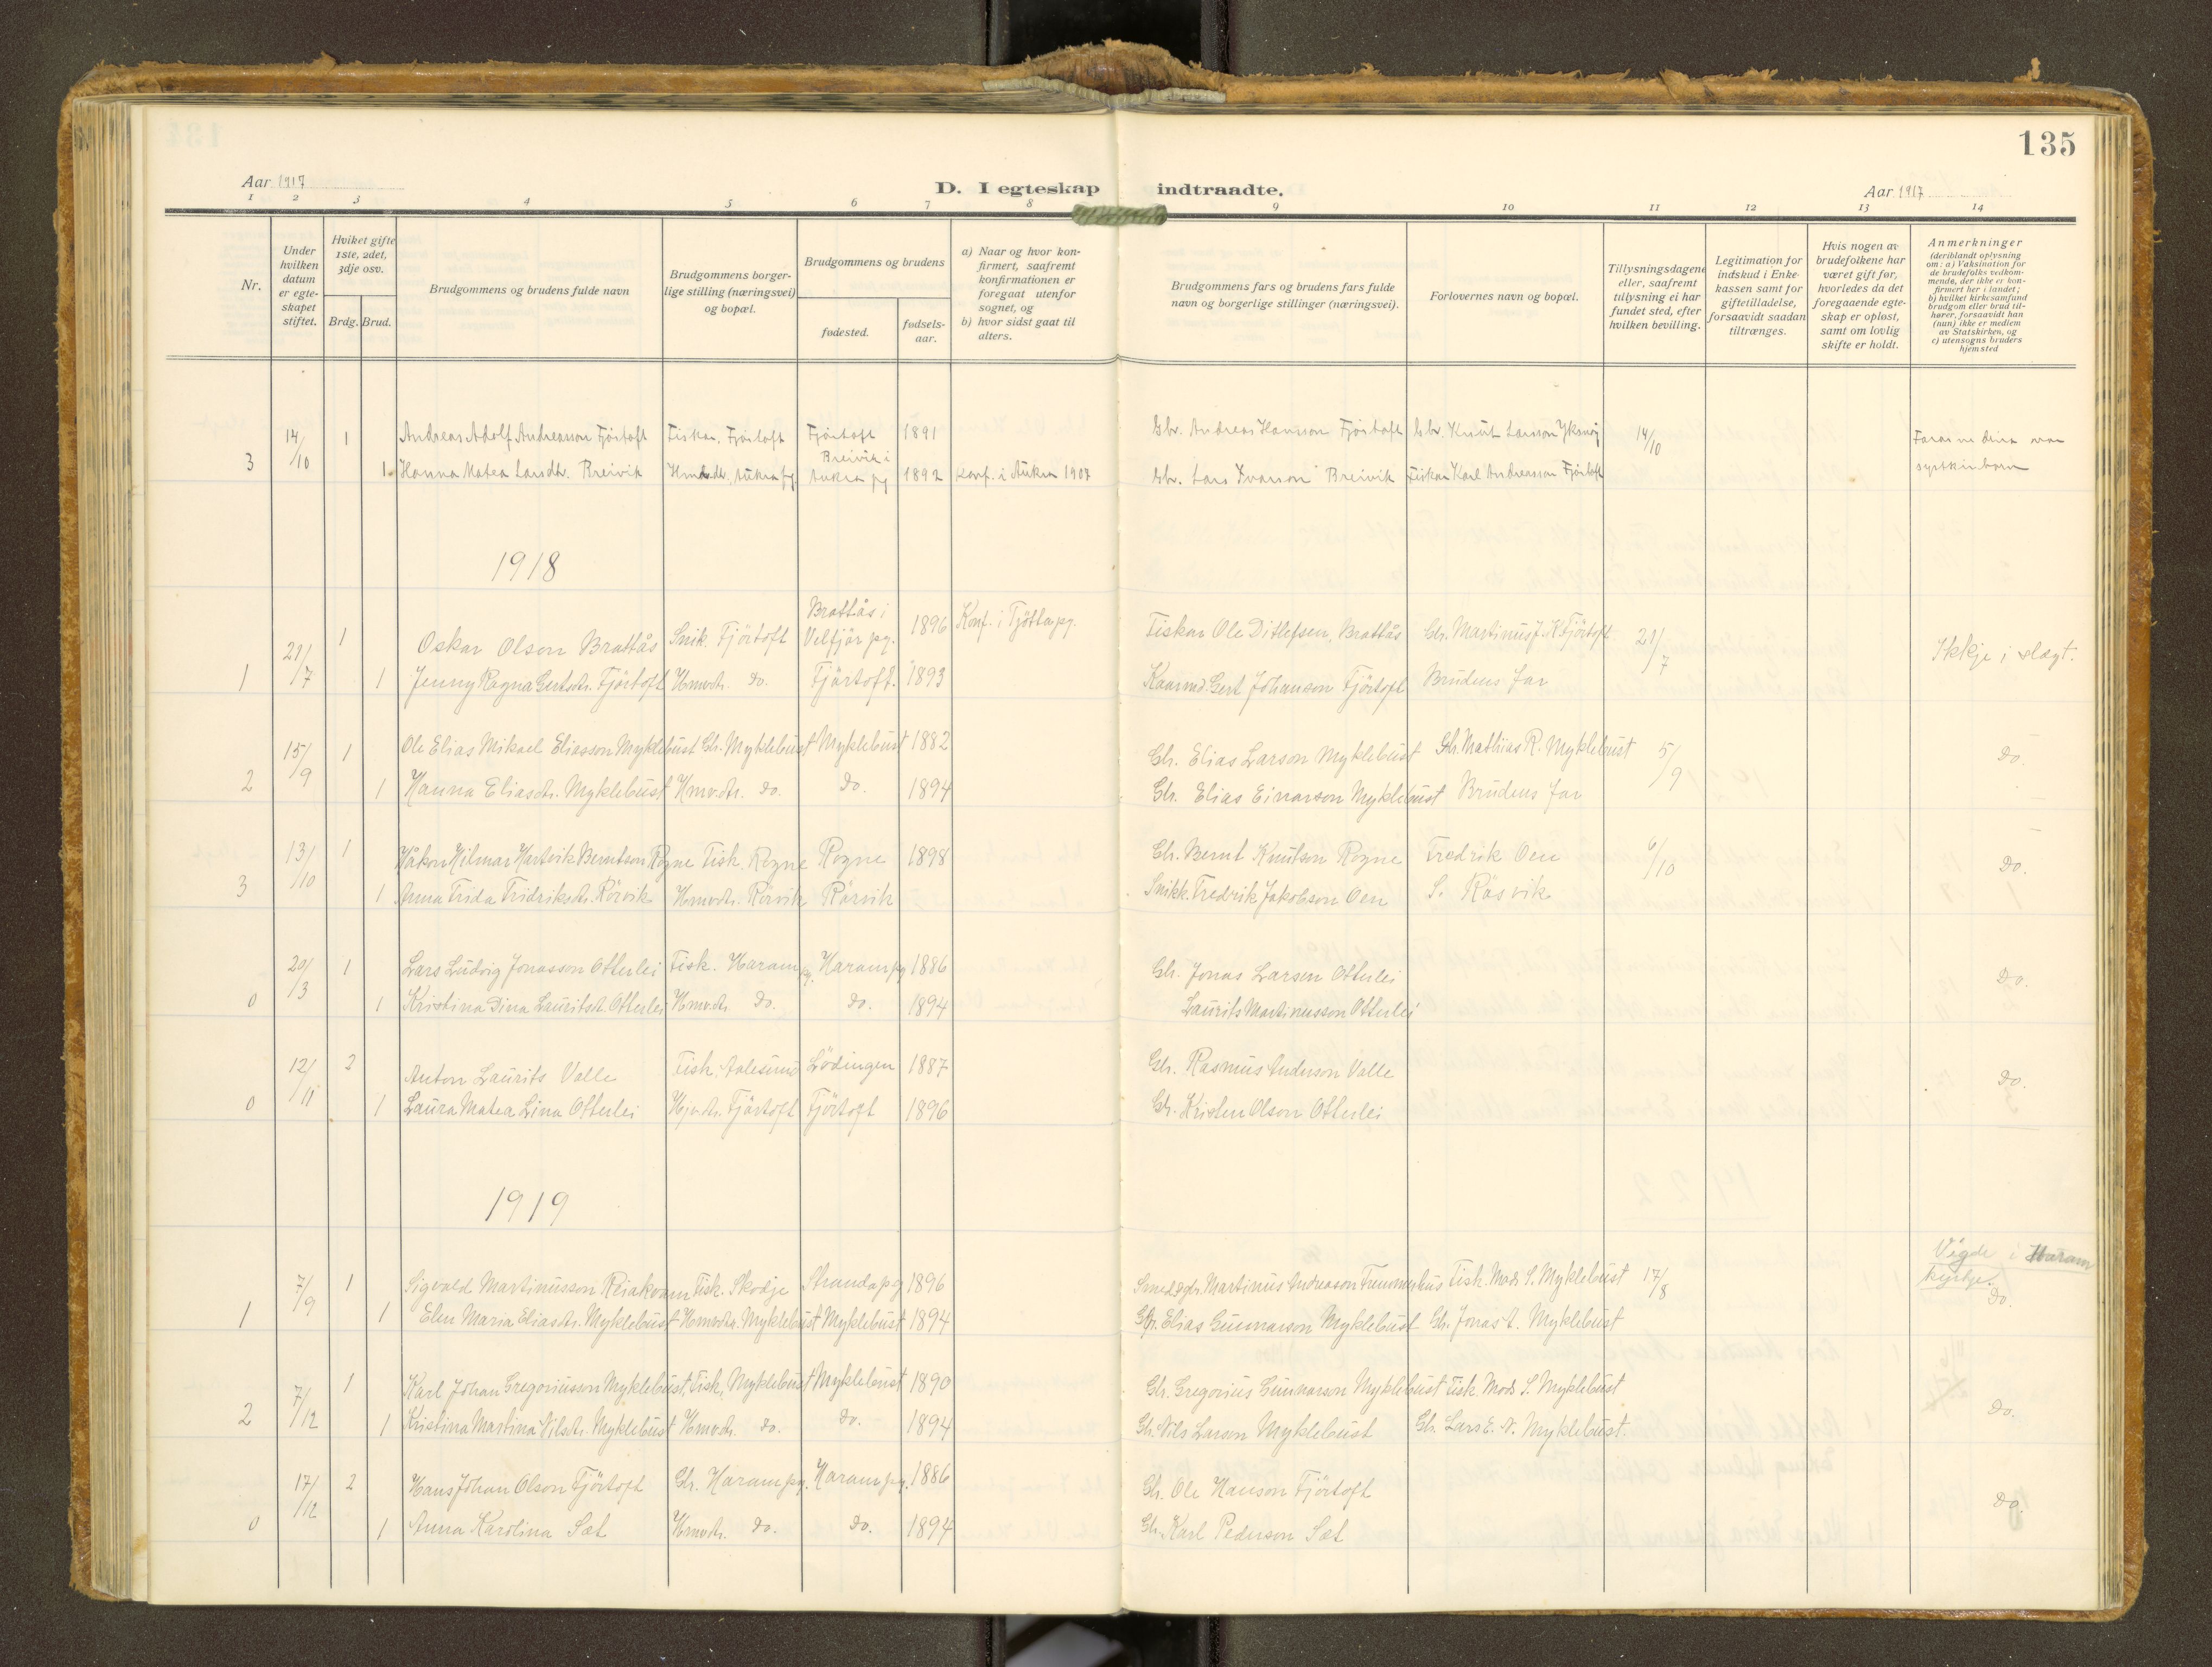 135
Aar 1917
D. I egteskap indtraadte.
Aar 1917
1 2 3 4 5 6 7 8 9 10 11 12 13 14
Nr.
Under hvilken datum er egteskapet stiftet.
Hviket gifte 1ste, 2det, 3dje osv.
Brdg. Brud.
Brudgommens og brudens fulde navn
Brudgommens borgerlige stilling (næringsvei) og bopæl.
Brudgommens og brudens
fødested.
fødselsaar.
a) Naar og hvor konfirmert, saafremt konfirmationen er foregaat utenfor sognet, og
b) hvor sidst gaat til alters.
Brudgommens fars og brudens fars fulde navn og borgerlige stillinger (næringsvei).
Forlovernes navn og bopæl.
Tillysningsdagene eller, saafremt tillysning ei har fundet sted, efter hvilken bevilling.
Legitimation for indskud i Enkekassen samt for giftetilladelse, forsaavidt saadan tiltrænges.
Hvis nogen av brudefolkene har været gift før, hvorledes da det foregaaende egteskap er opløst, samt om lovlig skifte er holdt.
Anmerkninger (deriblandt oplysning om: a) Vaksination for de brudefolks vedkommende, der ikke er konfirmert her i landet; b) hvilket kirkesamfund brudgom eller brud tilhører, forsaavidt han (hun) ikke er medlem av Statskirken, og c) utensogns bruders hjemsted
14/10 1 Andreas Adolf Andreasson Fjörtoft Fiskar, Fjörtoft Fjörtoft 1891 Gbr. Andreas Hansson Fjörtoft Gbr. Knut Larsson 14/10
3 1 Hanna Matea Larsdtr. Breivik Hmvdtr. Aukra pg. Breivik i Aukra pg 1892 Konf. i Aukra 1907 Gbr. Lars Ivarson Breivik Fiskar Karl Andreasson Fjörtoft syskinborn
1918
21/7 1 Oskar Olson Brattås Snik. Fjörtoft Brattås i Velfjör pg. 1896 Konf. i Tjötta pg. Fiskar Ole Ditlefsen, Brattås Gbr. Martinus J. K. Fjörtoft 21/7 Ikkje i slægt.
1 1 Jenny Ragna Gertsdtr. Fjörtoft Hmvdtr. do. Fjörtoft. 1893 Kaarmd. Gert Johanson Fjörtoft Brudens far
15/9 1 Ole Elias Mikael Eliasson Myklebust Gbr. Myklebust Myklebust 1882 Gbr. Elias Larson Myklebust Gbr. Mathias R. Myklebust 5/9 Do.
2 1 Hanna Eliasdtr. Myklebust Hmvdtr. do. do. 1894 Gbr. Elias Einarson Myklebust Brudens far
13/10 1 Håkon Hilmar Hartvik Berntson Rogne Fisk. Rogne Rogne 1898 Gbr. Bernt Knutson Rogne Fredrik Oen 6/10 Do.
3 1 Anna Frida Fridriksdtr. Rörvik Hmvdtr. Rörvik Rörvik Snikk. Fredrik Jakobson Oen S. Räsvik
20/3 1 Lars Ludvig Jonasson Otterlei Fisk. Haram pg. Haram pg 1886 Gbr. Jonas Larsen Otterlei Do.
0 1 Kristina Dina Lauritsdt. Otterlei Hmvdtr. do. do. 1894 Laurits Martinusson Otterlei
12/11 2 Anton Laurits Valle Fisk. Aalesund Lödingen 1887 Gbr. Rasmus Anderson Valle Do.
0 1 Laura Matea Lina Otterlei Hjvdtr. Fjörtoft Fjörtoft 1896 Gbr. Kristen Olson Otterlei
1919
7/9 1 Sigvald Martinusson Reiakvam Fisk. Skodje Stranda pg 1896 Martinus Andreason Fisk. Mads S. Myklebust 17/8 Vigde i Haram kyrkje.
1 1 Elen Maria Eliasdtr. Myklebust Hmvdtr. Myklebust Myklebust 1894 Gbr. Elias Gunnarson Myklebust Gbr. Jonas A. Myklebust Do.
7/12 1 Karl Johan Gregoriusson Myklebust. Fisk. Myklebust Myklebust 1890 Gbr. Gregorius Gunnarson Myklebust Fisk. Mads S. Myklebust
2 1 Kristina Martina Nilsdtr. Myklebust Hmvdtr. do. do. 1894 Gbr. Nils Larson Myklebust Gbr. Lars E. N. Myklebust. Do.
17/12 2 Hans Johan Olson Fjörtoft Gbr. Haram pg. Haram pg. 1886 Gbr. Ole Hanson Fjörtoft Do.
0 1 Anna Karolina Sæt Hmvdtr. do. do. 1894 Gbr. Karl Pederson Sæt